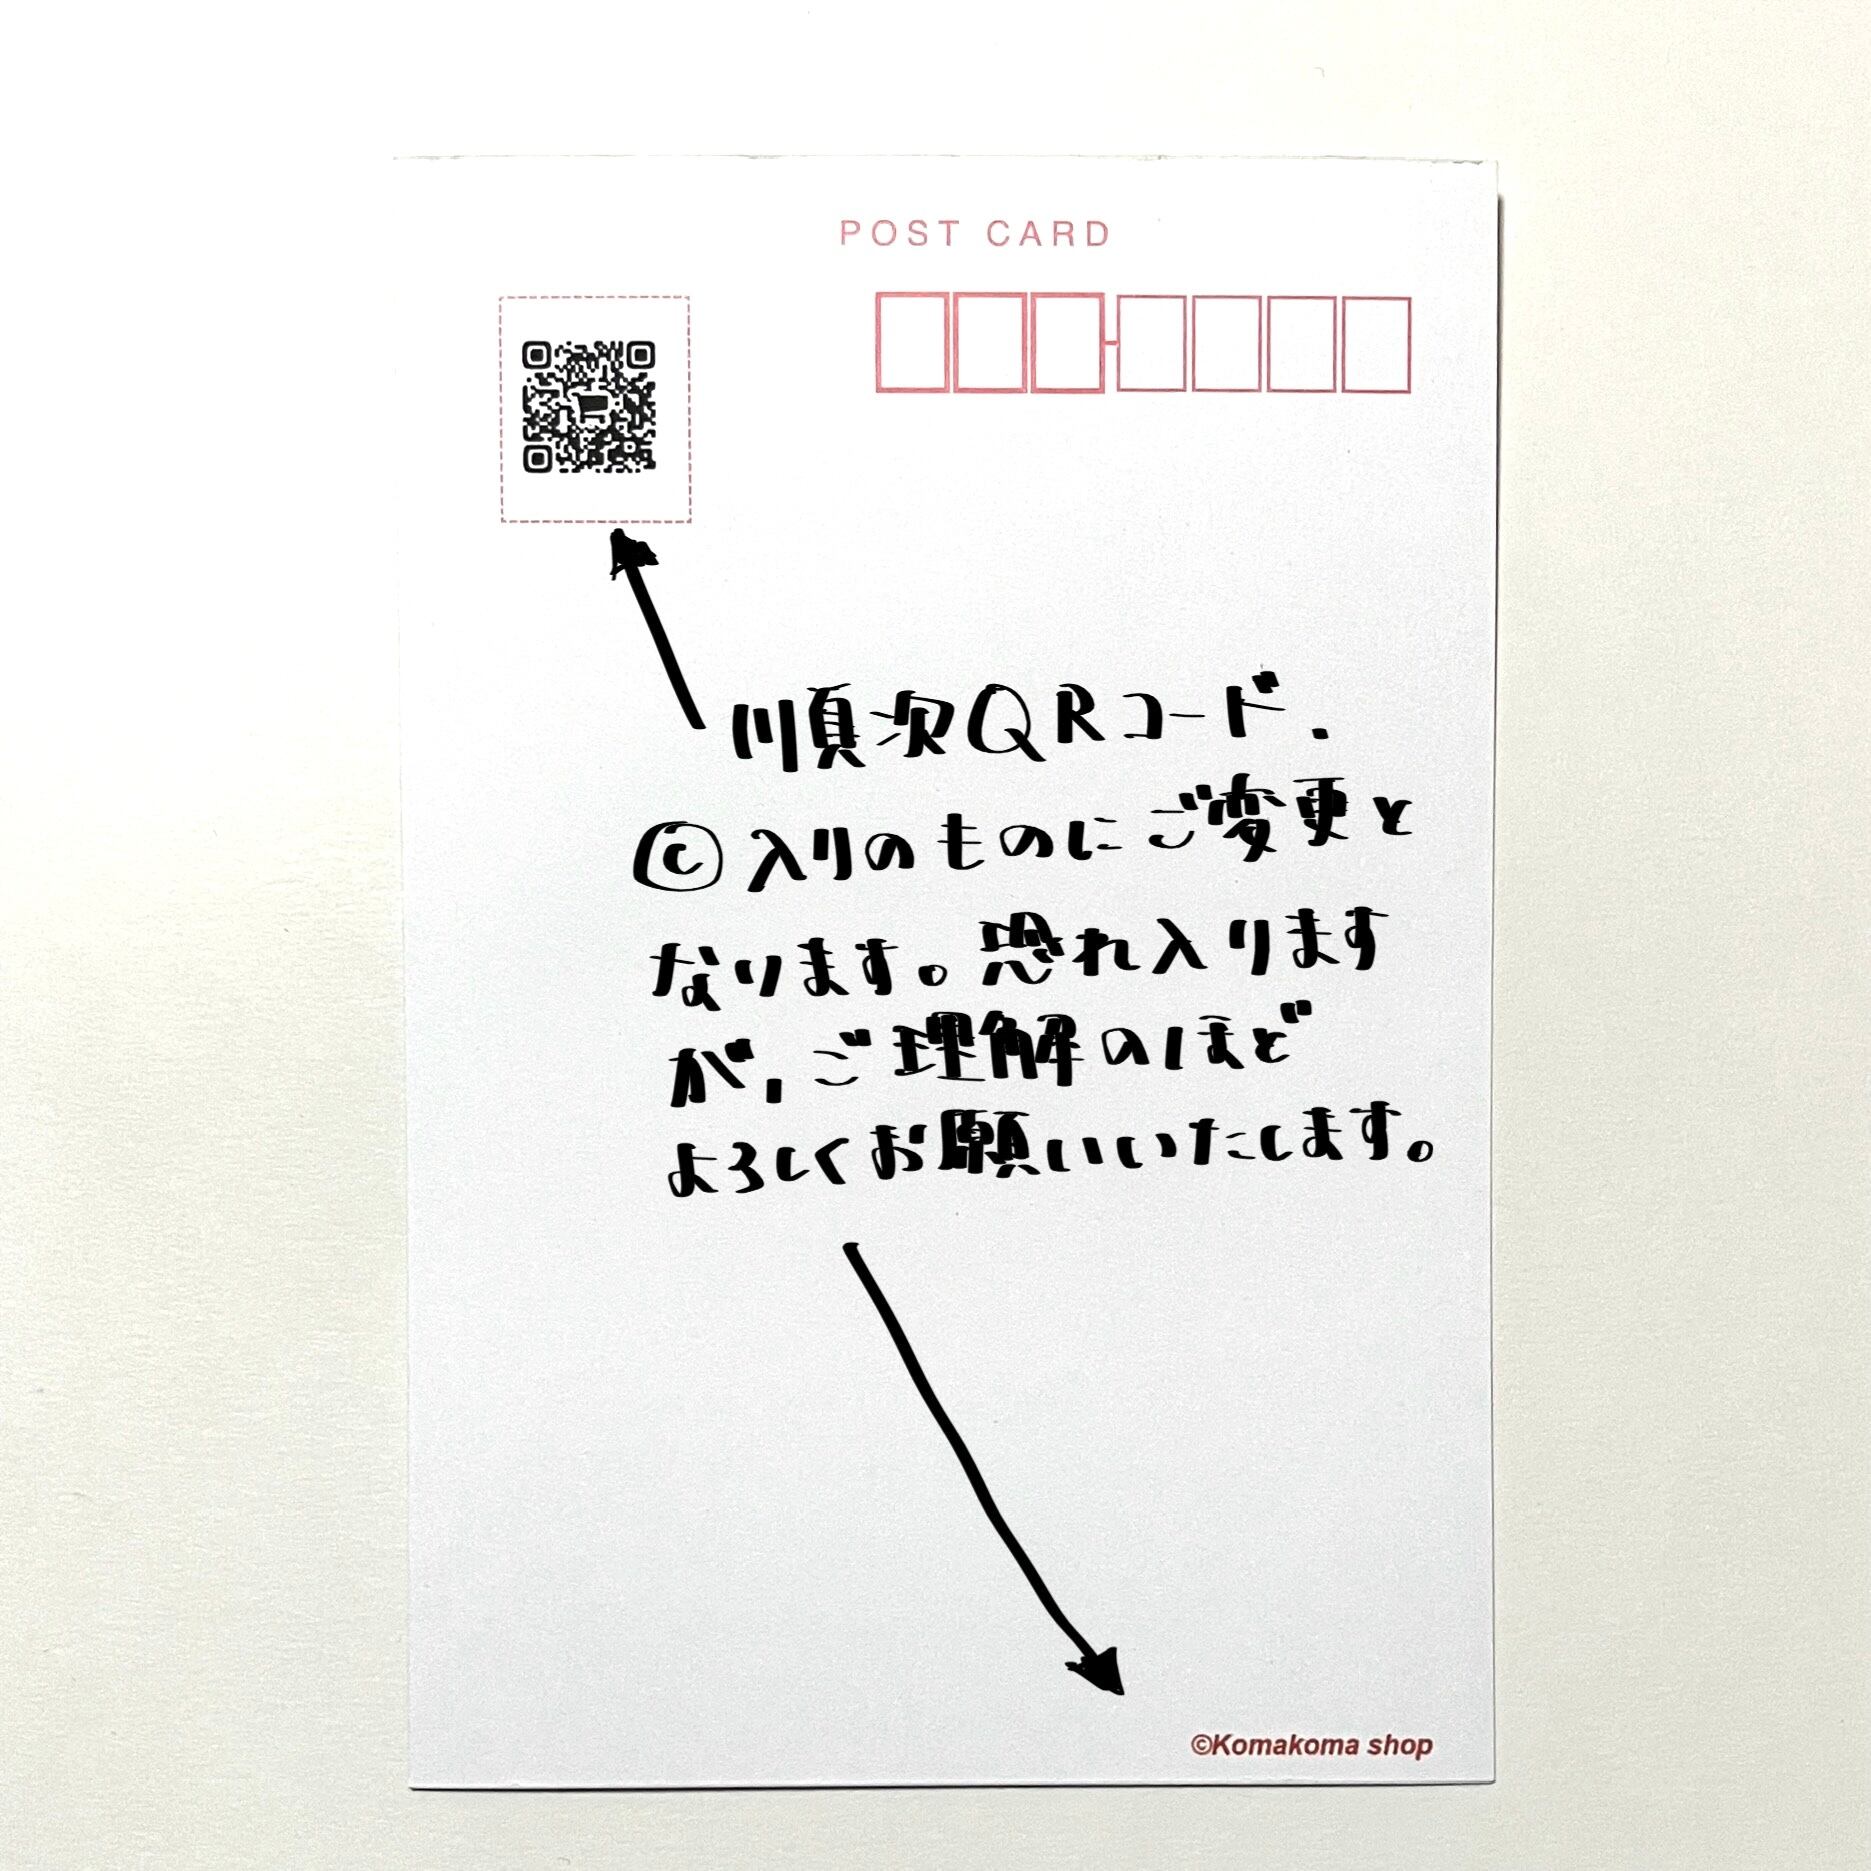 POST CARD
順次QRコード、
©入りのものにご変更と
なります。恐れ入ります
が、ご理解のほど
よろしくお願いいたします。
©Komakoma shop